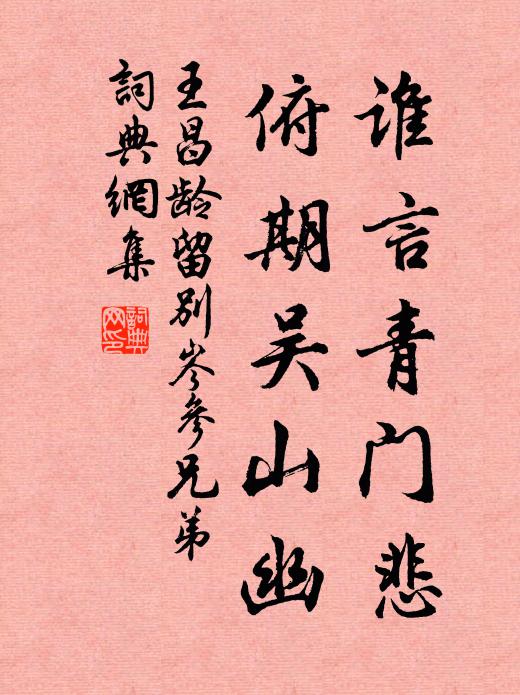 谁言青门悲
俯期吴山幽
王昌龄留别岑参兄弟
詞典網集
詞典网印